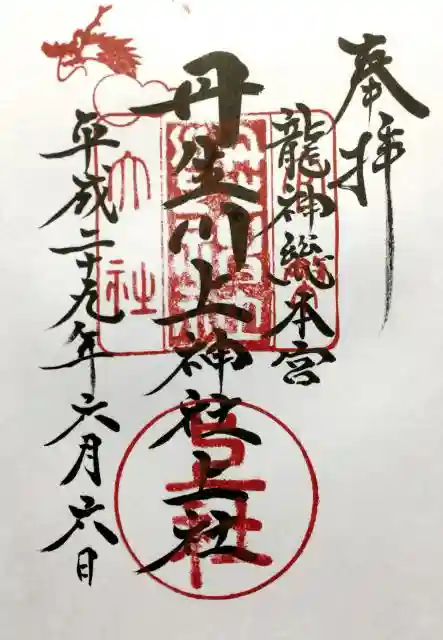 奉拝
龍神総本宮
丹生川上神社上社
平成二十九年六月六日